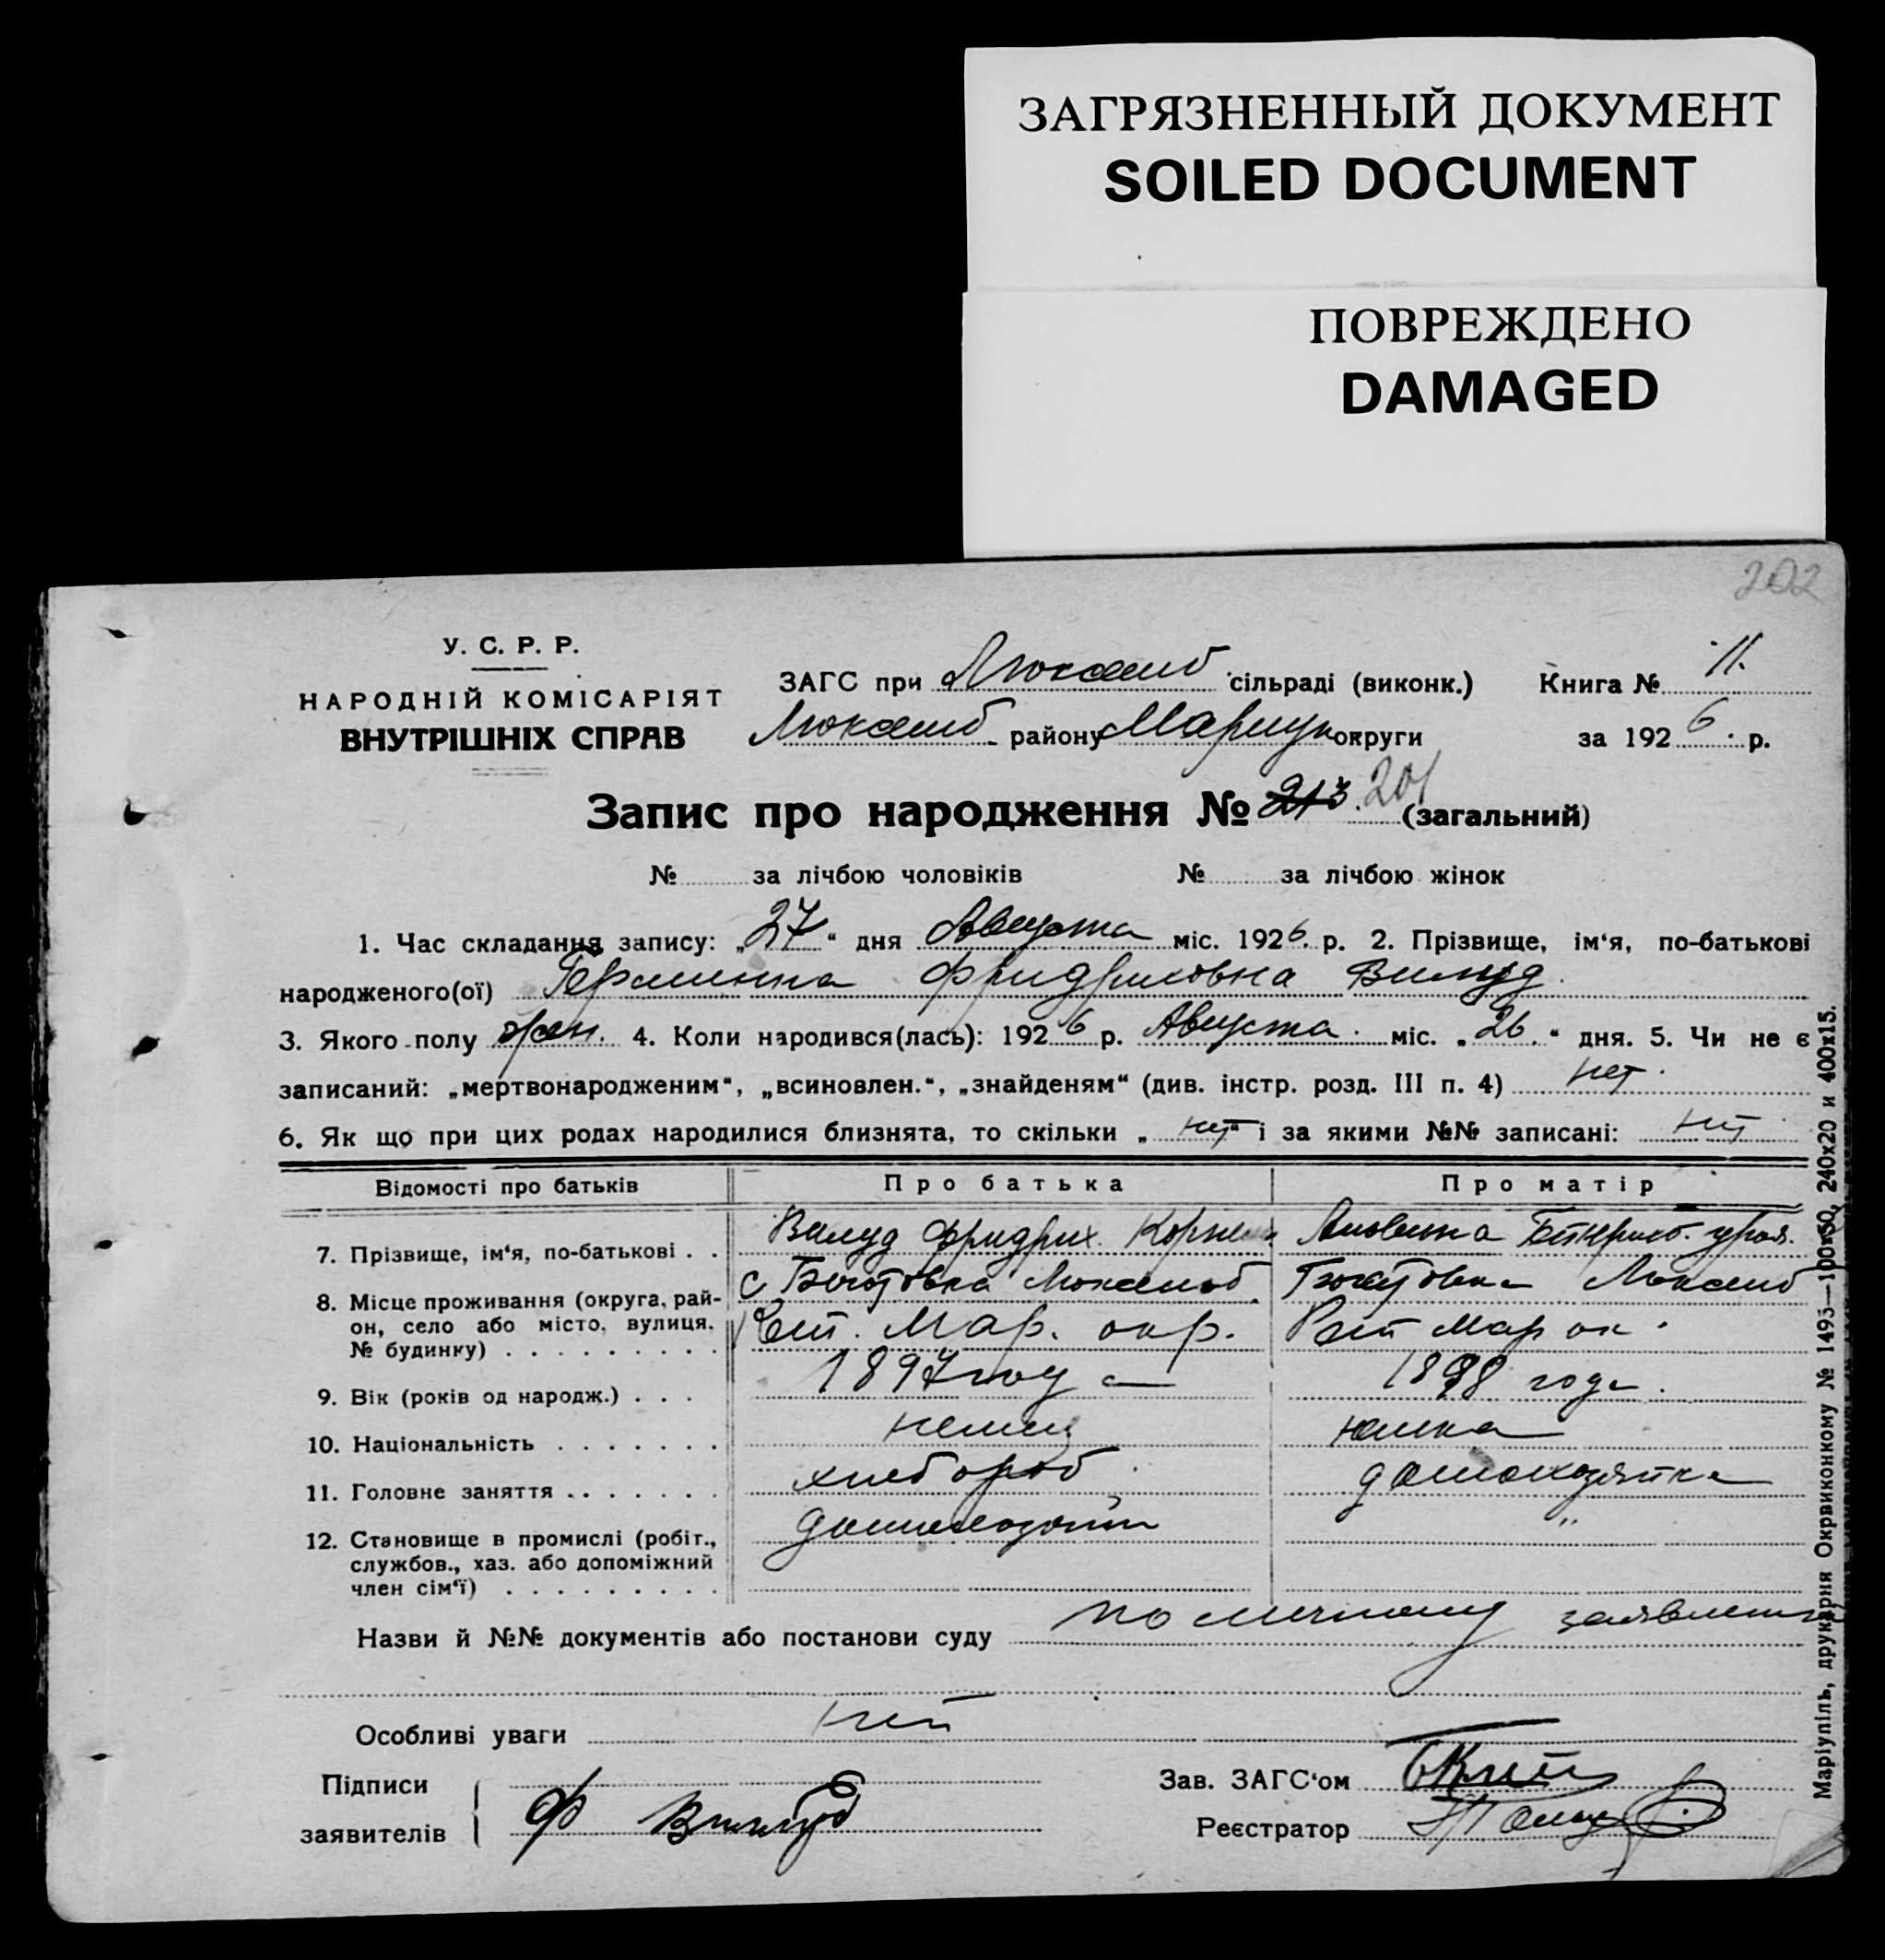 ЗАГРЯЗНЕННЫЙ ДОКУМЕНТ
SOILED DOCUMENT
ПОВРЕЖДЕНО
DAMAGED
202
У. С. Р. Р.
НАРОДНІЙ КОМІСАРІЯТ
ВНУТРІШНІХ СПРАВ
ЗАГС при Люксемб сільраді (виконк.) Книга № 11.
Люксемб. району Мариуп округи за 1926 р.
Запис про народження № 213. 201 (загальний)
№ за лічбою чоловіків № за лічбою жінок
1. Час складання запису: „27“ дня Августа міс. 1926. р. 2. Прізвище, ім‘я, по-батькові
народженого(ої) Фридриховна
3. Якого полу жен. 4. Коли народився(лась): 1926 р. Августа міс. „26.“ дня. 5. Чи не є
записаний: „мертвонародженим“, „всиновлен.“, „знайденям“ (див. інстр. розд. III п. 4) нет
6. Як що при цих родах народилися близнята, то скільки „нет“ і за якими №№ записані: нет
Відомості про батьків Про батька Про матір
7. Прізвище, ім‘я, по-батькові . . Фридрих
8. Місце проживання (округа, рай-
он, село або місто, вулиця,
№ будинку) . . . . . . . . . Мар. окр. Мар ок.
9. Вік (років од народж.) . . . 1897 году 1898 года.
10. Національність . . . . . . . немец немка
11. Головне заняття . . . . . . . хлебороб домохозяйка
12. Становище в промислі (робіт., домохозяин "
службов., хаз. або допоміжний
член сім‘ї) . . . . . . . . .
Назви й №№ документів або постанови суду по личному заявлению
Особливі уваги нет
Підписи
заявителів Ф
Зав. ЗАГС‘ом
Реєстратор
Маріупіль, друкарня Окрвиконкому № 1493—100×50, 240×20 и 400×15.